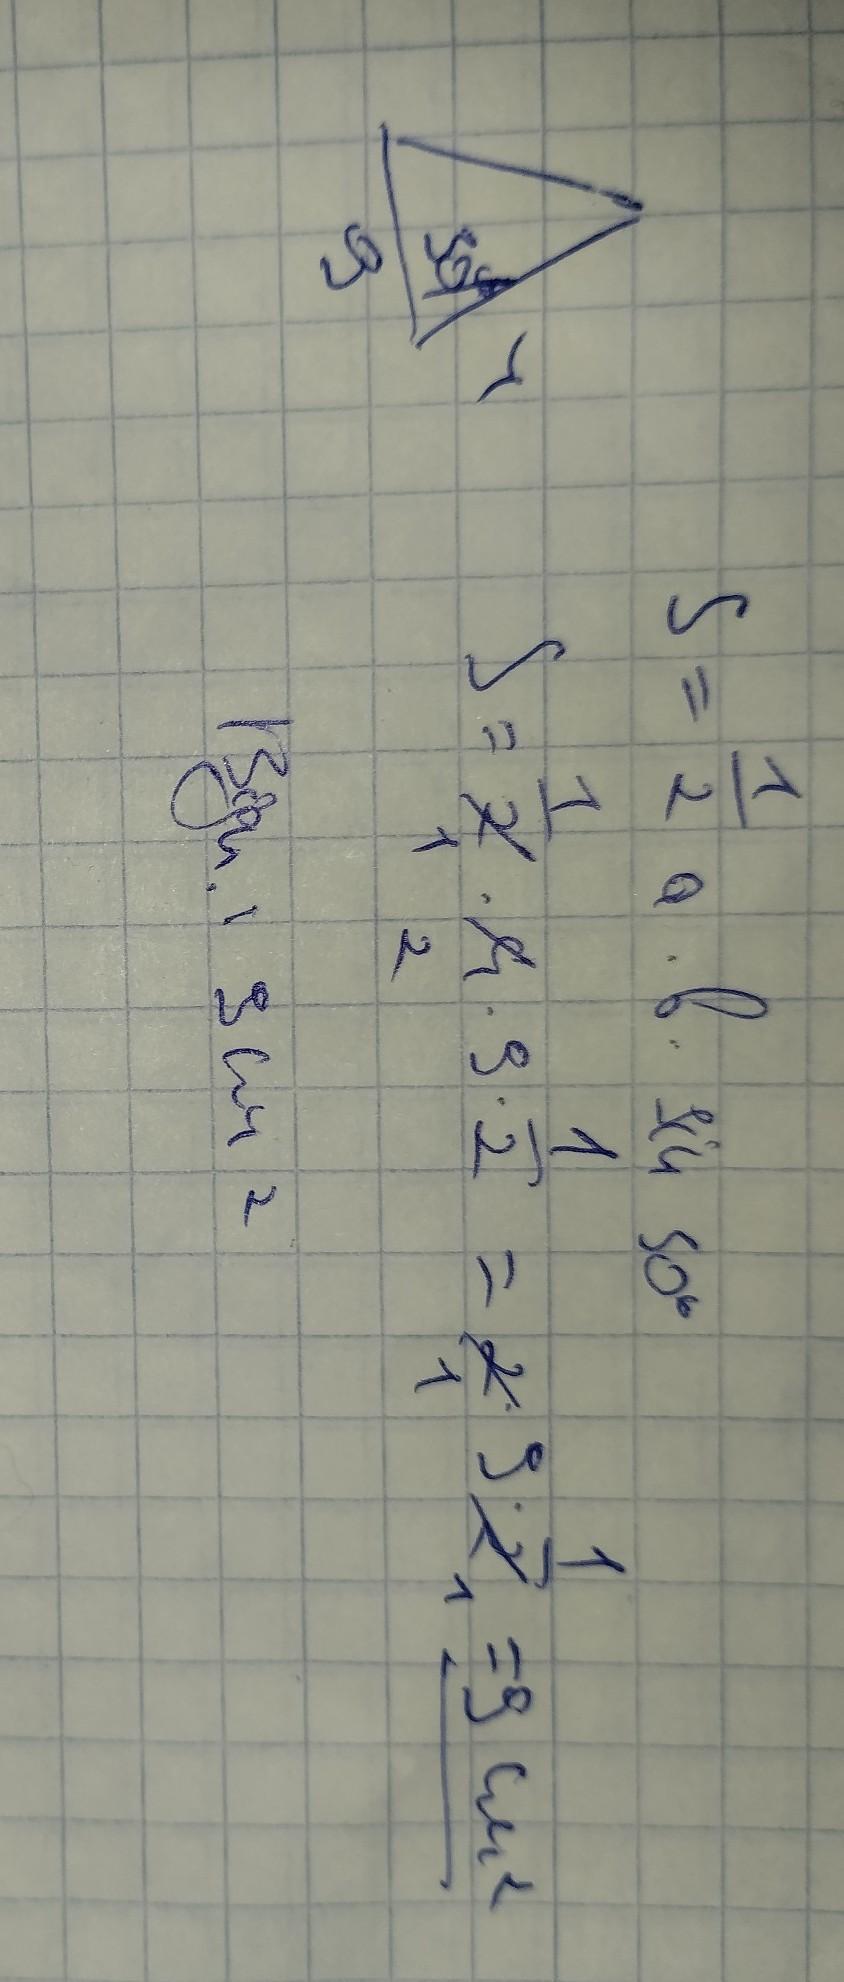 4
30°
9
S = 1/2 a · b · sin 30°
S = 1/2 · 4 · 9 · 1/2 = 2 · 9 · 1/2 = 9 см²
1 2 1 1
Відп.: 9 см²